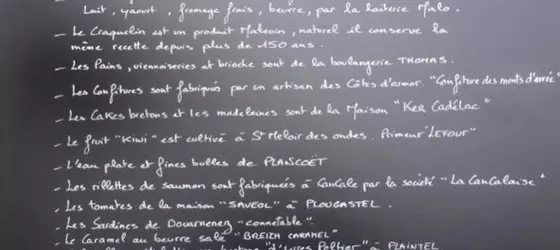 Lait, yaourt, fromage frais, beurre, par la laiterie Malo.
- Le Craquelin est un produit Malouin, naturel il conserve la
même recette depuis plus de 150 ans.
- Les Pains, viennoiseries et brioche sont de la boulangerie THOMAS.
- Les Confitures sont fabriqués par un artisan des Côtes d'armor. "Confiture des monts d'arrée"
- Les Cakes bretons et les madeleines sont de la Maison "KER CADÉLAC"
- Le fruit "Kiwi" est cultivé à St Meloir des ondes. Primeur "LEFOUR"
- L'eau plate et fines bulles de PLANCOËT
- Les rillettes de saumon sont fabriqués à Cancale par la société "La Cancalaise"
- Les tomates de la maison "SAVEOL" à PLOUGASTEL.
- Les Sardines de Douarnenez "connetable".
- Le Caramel au beurre salé "BREIZH CARAMEL"
"d'Yves Peltier" à PLAINTEL